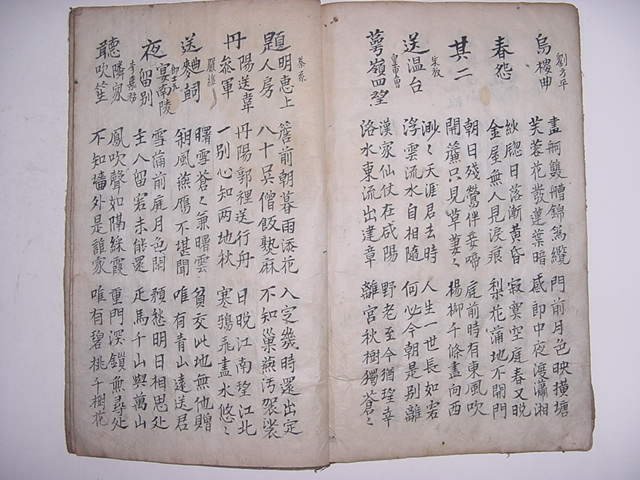 烏樓曲
劉方平
畫舸雙艚錦爲纜 門前月色映橫塘
芙蓉花發蓮葉暗 感郎中夜渡瀟湘
春怨
紗牕日落漸黃昏 寂寞空庭春又晚
金屋無人見淚痕 梨花滿地不開門
其二
朝日殘鶯伴妾啼 庭前時有東風吹
開簾只見草萋〻 楊柳千條盡向西
送温台
朱放
眇〻天涯君去時 人生一世長如客
浮雲流水自相隨 何必今朝是別離
萼嶺四望
皇甫曾
漢家仙仗在咸陽 野老至今猶望幸
洛水東流出建章 離宮秋樹獨蒼〻
題明惠上人房
秦系
簷前朝暮雨添花 入定幾時還出定
八十吳僧飯熟麻 不知巢燕汚袈裟
丹陽送韋參軍
嚴維
丹陽郭裡送行舟 日晚江南望江北
一別心知兩地秋 寒鴉飛盡水悠〻
送麴司
郎士元
曙雪蒼〻兼曙雲 貧交此地無他贈
朔風燕鴈不堪聞 唯有青山遠送君
夜宴南陵留別
李嘉祐
雪滿前庭月色閑 預愁明日相思處
主人留客未能還 疋馬千山與萬山
聽隣家吹笙
鳳吹聲如隔綵霞 重門深鎖無尋處
不知墻外是誰家 唯有碧桃千樹花